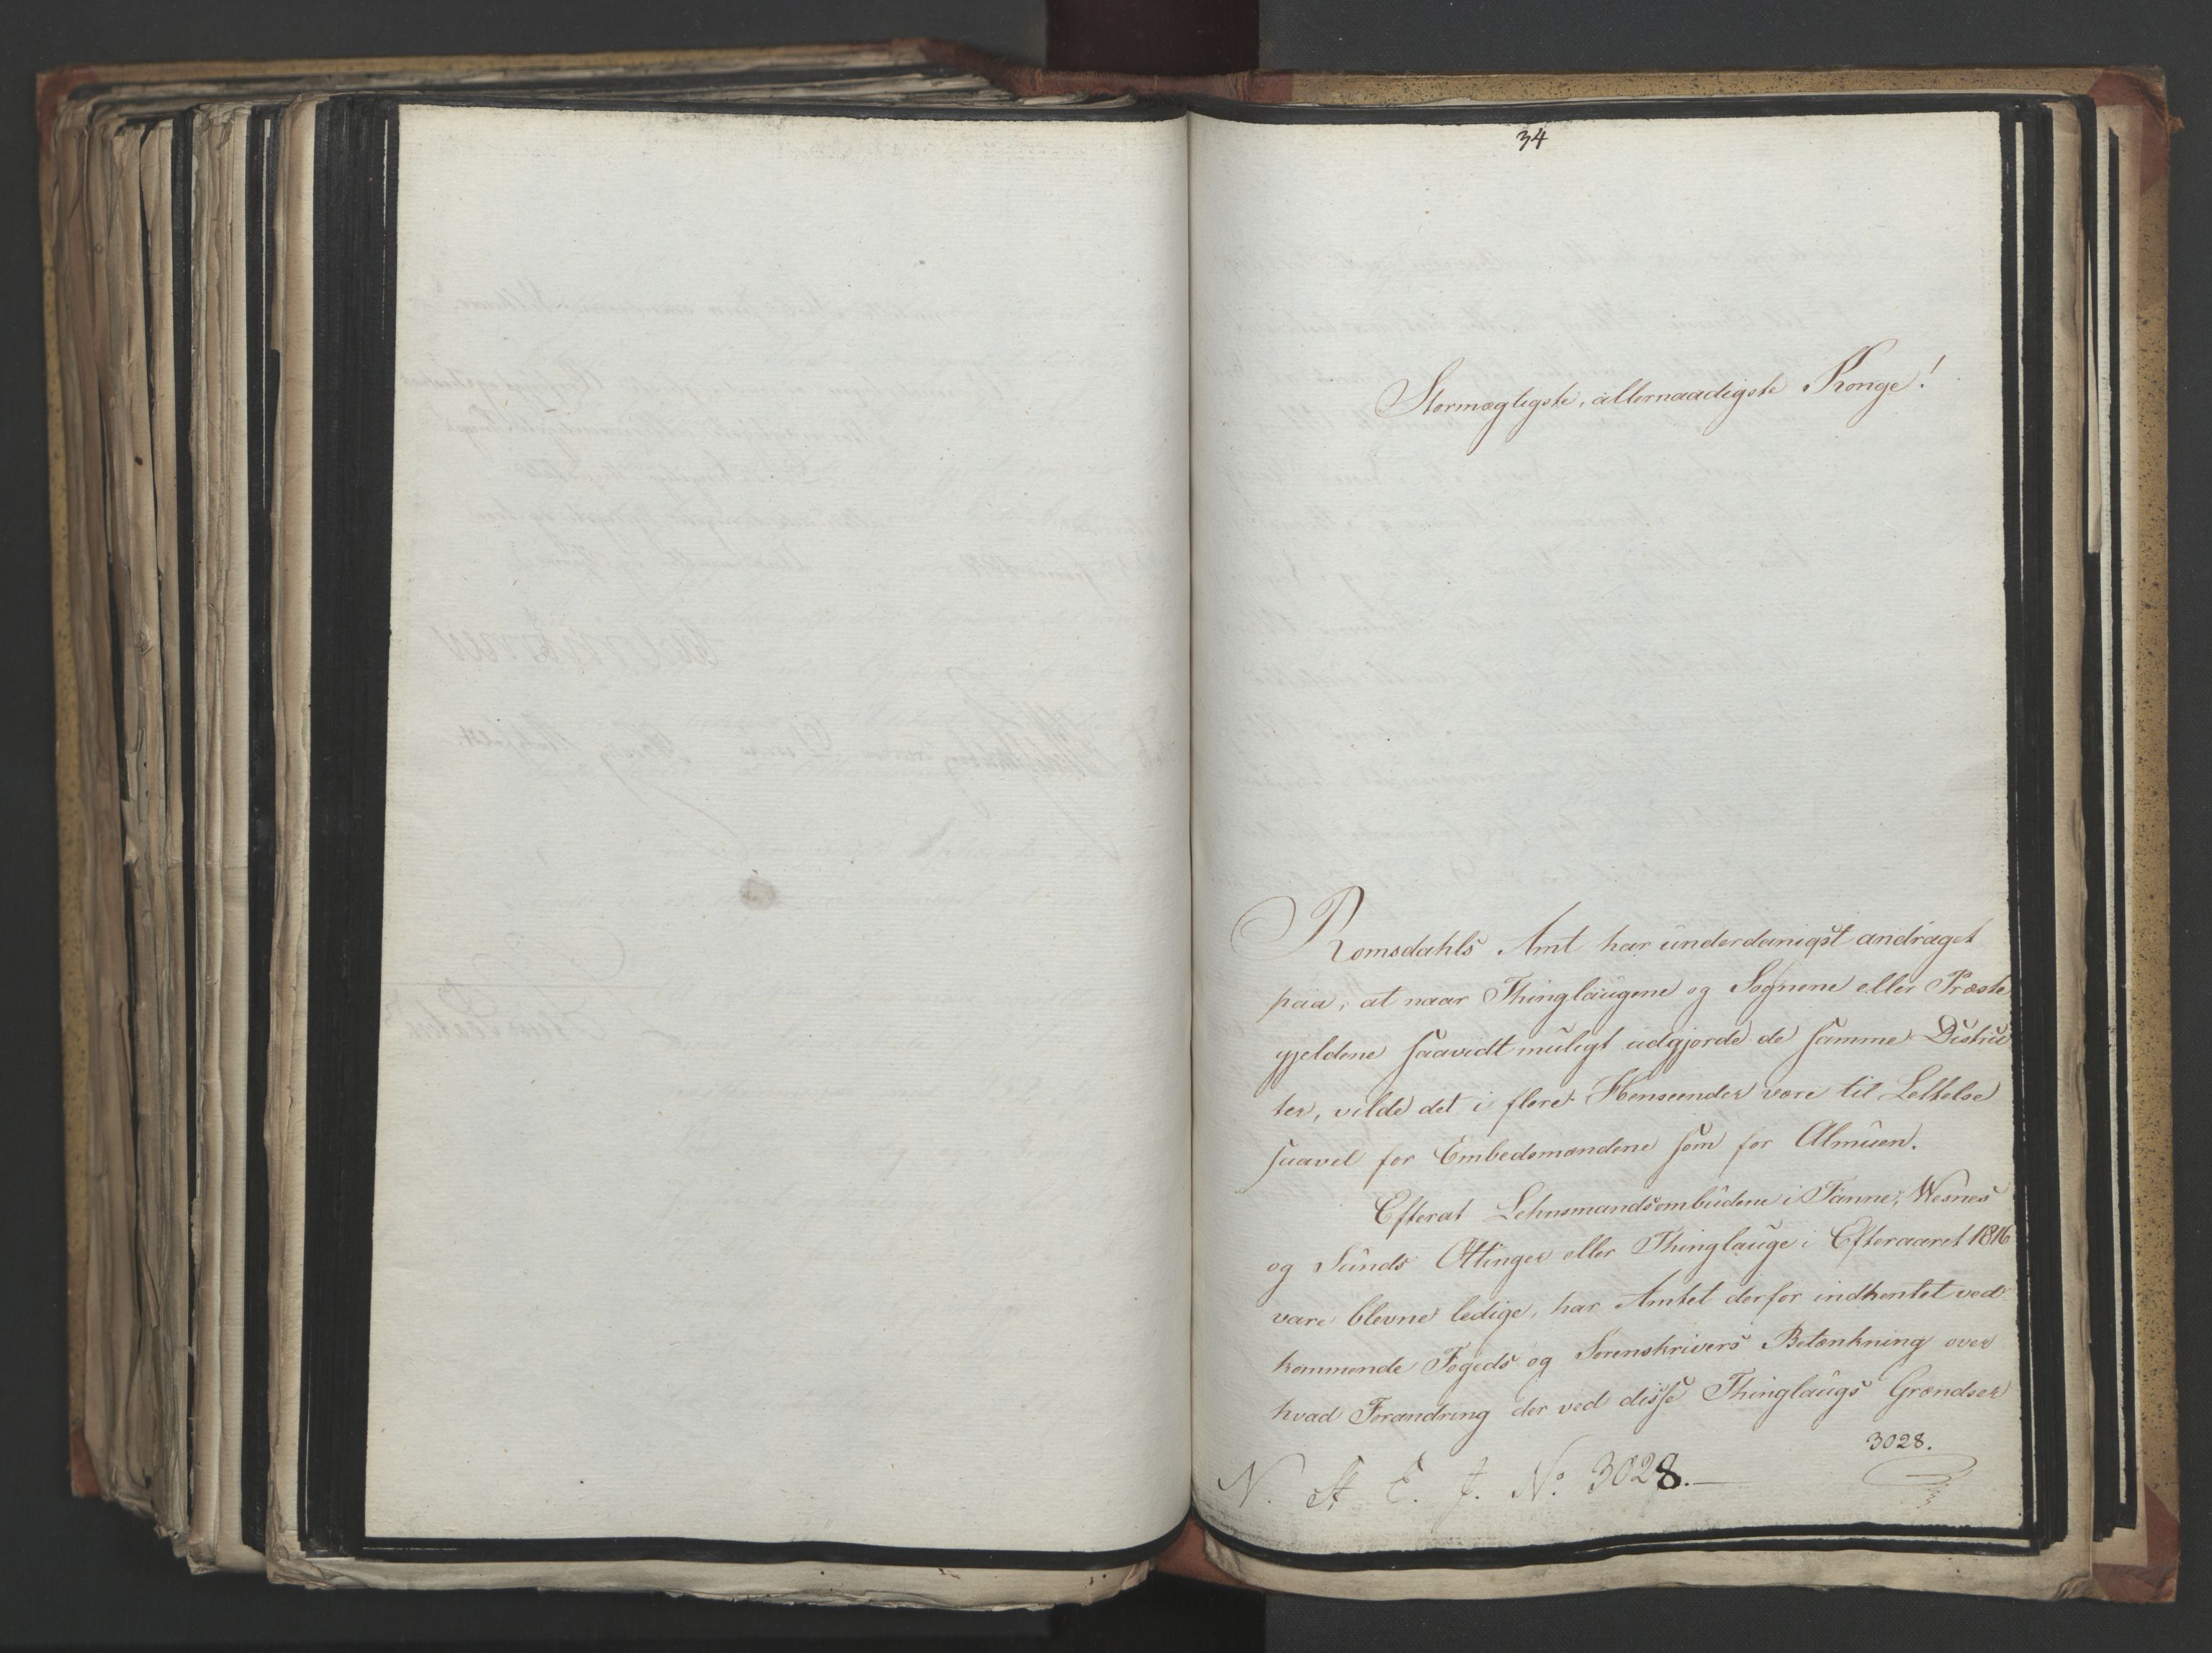 34
Stormægtigste, allernaadigste Konge!
Romsdahls Amt har underdanigst andraget
paa, at naar Thinglaugene og Sognene eller Præste
gjeldene saavidt muligt udgjorde de samme Distric
ter, vilde det i flere Henseender være til Lettelse
saavel for Embedsmændene som for Almuen.
Efterat Lehnsmandsombudene i Fanne, Wesnes
og Sunds Ottinger eller Thinglauge i Efteraaret 1816
vare blevne ledige, har Amtet derfor indhentet ved
kommende Fogeds og Sorenskrivers Betænkning over
hvad Forandring der ved disse Thinglaugs Grændser
3028.
N. A E. J. No. 3028.—